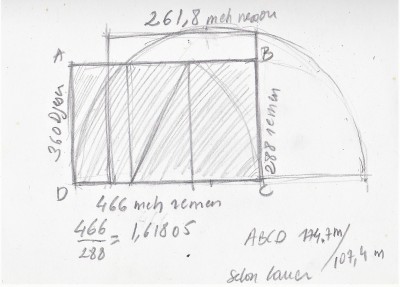 261,8 meh remen
A
B
360 Djeser
288 remen
D
C
466 meh remen
466
288
= 1,61805
ABCD 174,7 m /
107,4 m
Selon Lauer